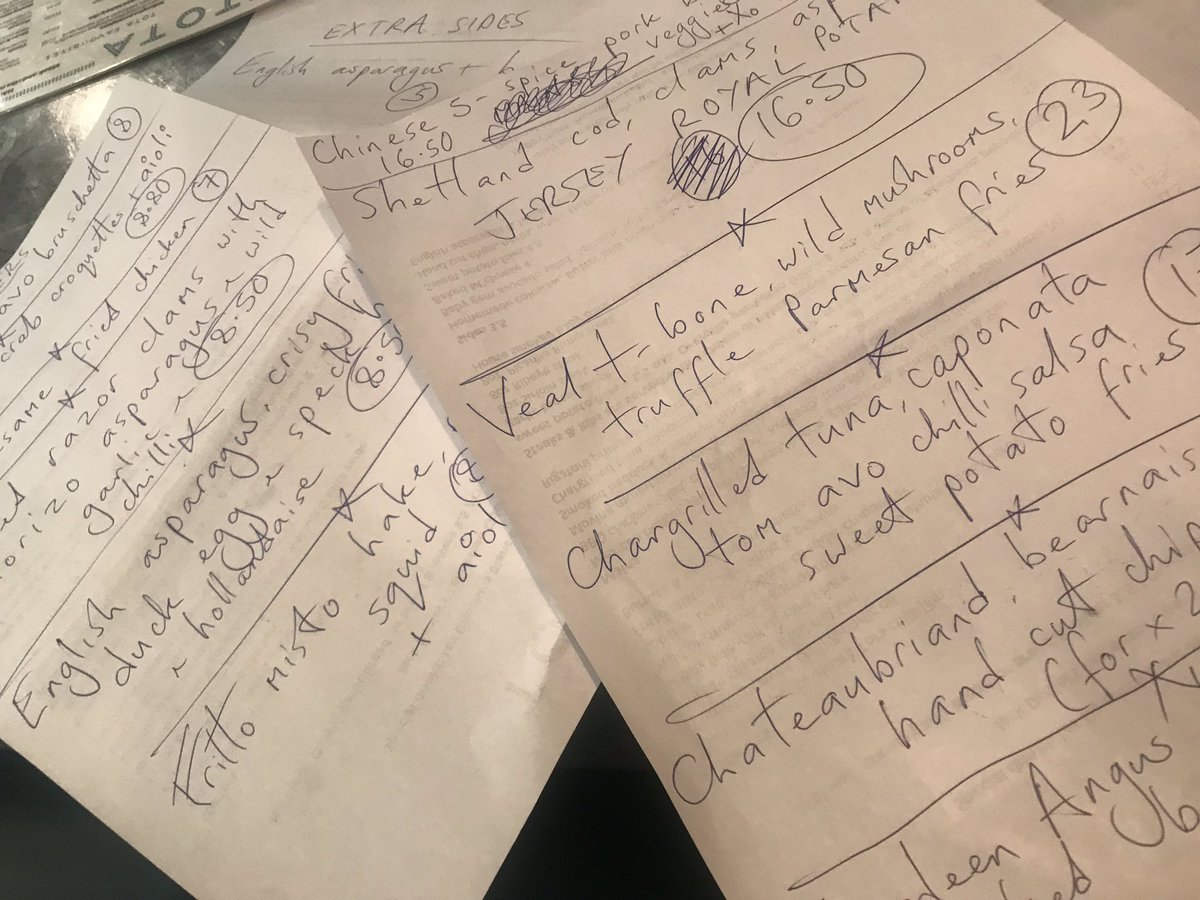 TOTA
EXTRA SIDES
English asparagus + h
5
avo bruschetta 8
crab croquettes + aioli
8.80
sesame fried chicken 7
razor clams with
chorizo asparagus + wild
garlic + chilli
8.50
English asparagus, crispy fri
duck egg + speck
+ hollandaise
8.5
Fritto misto hake,
squid
+ aiol
Chinese 5-spice pork
veggies
16.50
Shetland cod, clams, asp
JERSEY ROYAL POTA
16.50
Veal t-bone, wild mushrooms,
truffle parmesan fries 23
Chargrilled tuna, caponata
tom avo chilli salsa
sweet potato fries
Chateaubriand, bearnais
hand cut chip
(for x 2
deen Angus